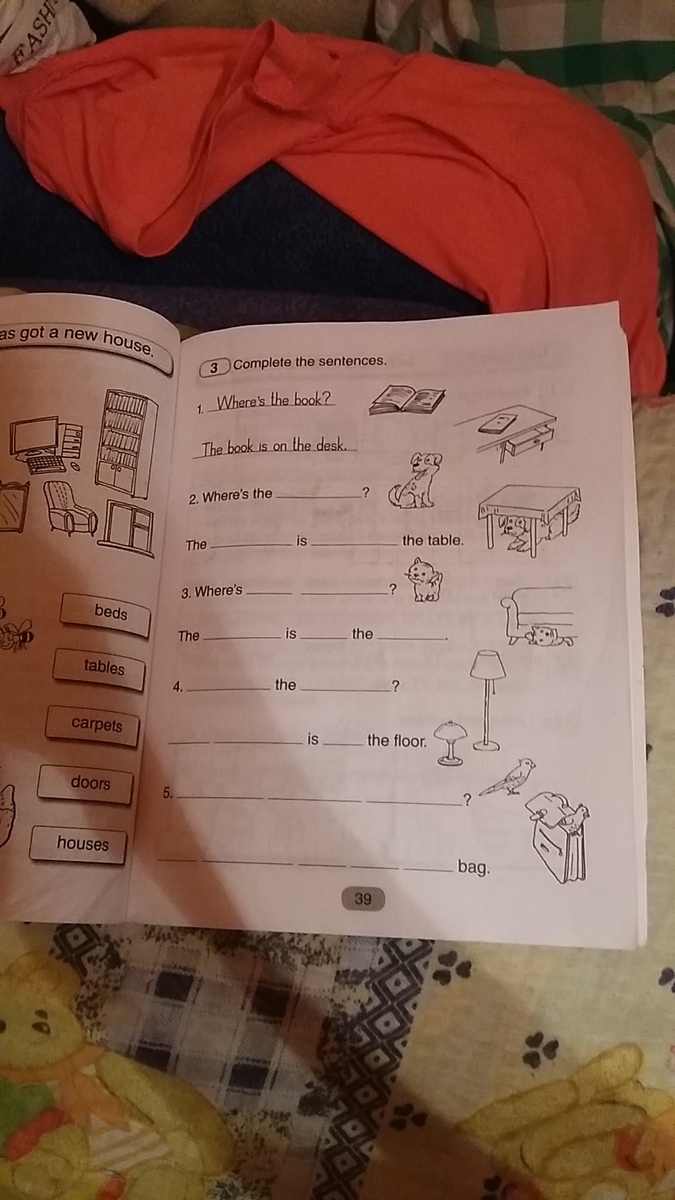 FASH
as got a new house.
beds
tables
carpets
doors
houses
3 Complete the sentences.
1. Where's the book?
The book is on the desk.
2. Where's the ________?
The ________ is ________ the table.
3. Where's ____ ________?
The ________ is ____ the ________.
4. ________ the ________?
____ ________ is ____ the floor.
5. ________ ________ ________?
____ ________ ____ ____ ____ bag.
39